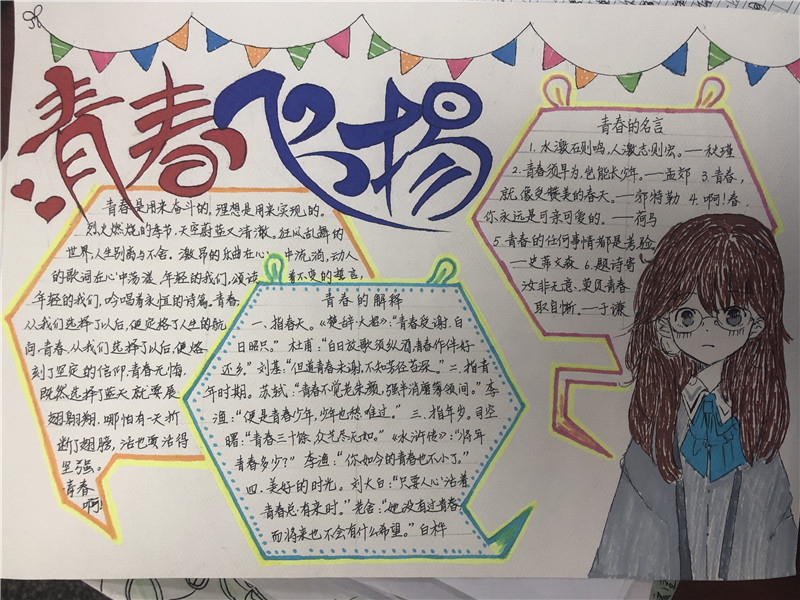 青春飞扬
青春是用来奋斗的,理想是用来实现的。
烈火燃烧的季节,天空蔚蓝又清澈。狂风乱舞的
世界,人生别离与不舍。激昂的乐曲在心中流淌,动人
的歌词在心中荡漾,年轻的我们,颂读着不变的誓言,
年轻的我们,吟唱着永恒的诗篇,青春,
从我们选择了以后,便定格了人生的航
向。青春,从我们选择了以后,便烙
刻了坚定的信仰,青春无悔,
既然选择了蓝天就要展
翅翱翔,哪怕有一天折
断了翅膀,活也要活得
坚强。
青春
啊!
青春的解释
一.指春天。《楚辞·大招》:“青春受谢,白
日昭只。”杜甫:“白日放歌须纵酒,青春作伴好
还乡。”刘基:“但道青春未谢,不知芳径苔深。”二.指青
年时期。苏轼:“青春不觉老朱颜,强半消磨簿领间。”李
渔:“便是青春少年,少年也愁难过。”三.指年少。司空
曙:“青春三十余,众艺尽无如。”《水浒传》:“将年
青春多少?”李渔:“你如今的青春也不小了。”
四.美好的时光。刘大白:“只要人心活着
青春总有来时。”老舍:“她没有过青春
而将来也不会有什么希望。”白桦
青春的名言
1.水激石则鸣,人激志则宏。——秋瑾
2.青春须早为,岂能长少年。——孟郊 3.青春,
就像受赞美的春天。——郭特勒 4.啊!春,
你永远是可亲可爱的。——荷马
5.青春的任何事情都是考验
——史蒂文森 6.题诗寄
汝非无意,莫负青春
取自惭。——于谦